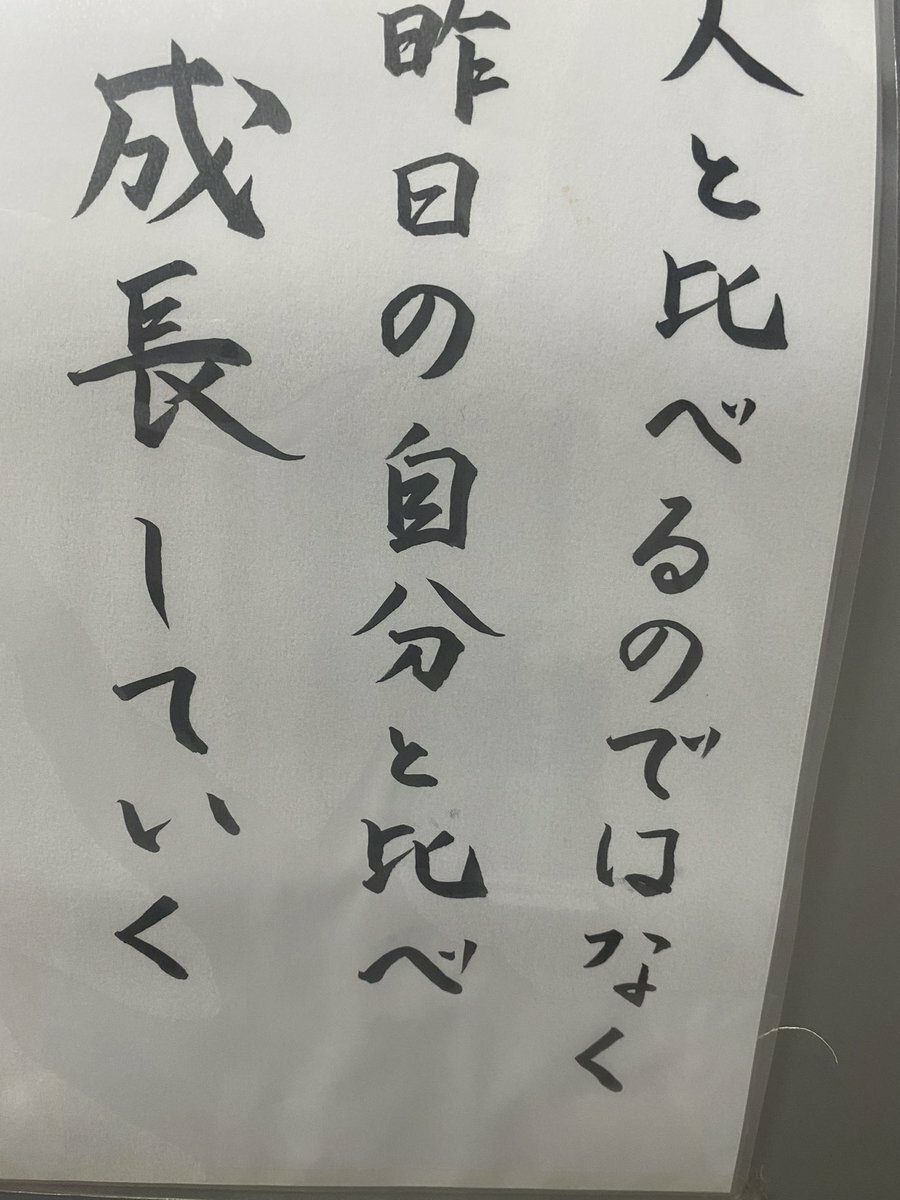 人と比べるのではなく
昨日の自分と比べ
成長していく